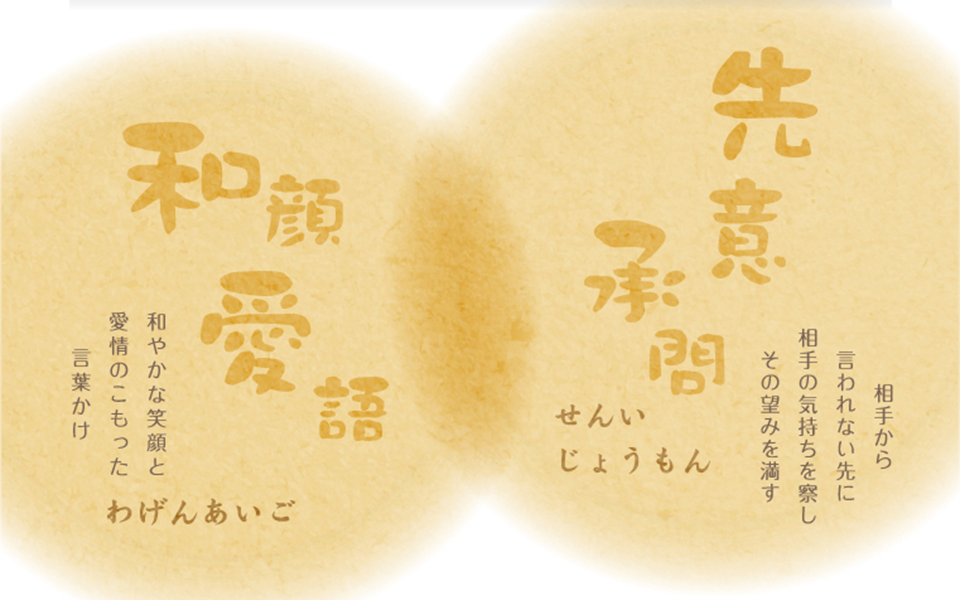 先意
承問
せんい
じょうもん
相手から
言われない先に
相手の気持ちを察し
その望みを満す
和顔
愛語
わげんあいご
和やかな笑顔と
愛情のこもった
言葉かけ